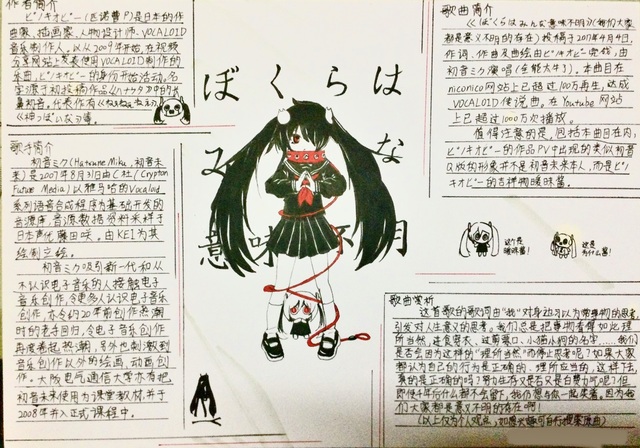 作者简介
ピノキオピー(匹诺曹P)是日本的作
曲家、插画家、人物设计师、VOCALOID
音乐制作人。以从2009年开始,在视频
分享网站上发表使用VOCALOID制作的
乐曲,ピノキオピー的身份开始活动。名
字源于初投稿作品《ハナウタ》中的长
鼻初音。代表作有《ねぇねぇねぇ》
《神っぽいな》等。
歌手简介
初音ミク(Hatsune Miku,初音未
来)是2007年8月31日由C社(Crypton
Future Media)以雅马哈的Vocaloid
系列语音合成程序为基础开发的
音源库,音源数据资料采样于
日本声优藤田咲。由KEI为其
绘制立绘。
初音ミク吸引新一代和从
未认识电子音乐的人接触电子
音乐创作,令更多人认识电子音乐
创作,亦令约20年前创作热潮
时的老手回归,令电子音乐创作
再度卷起热潮,另外也刺激到
音乐创作以外的绘画,动画创
作。大阪电气通信大学亦有把
初音未来使用为课堂教材,并于
2008年并入正式课程中。
ぼくらは
みんな
意味不明
歌曲简介
《ぼくらはみんな意味不明》(我们大家
都是意义不明的存在)投稿于2017年4月4日,
作词、作曲及曲绘由ピノキオピー完成,由
初音ミク演唱(全能大牛了)。本曲目在
niconico网站上已超过100万再生,达成
VOCALOID传说曲,在Youtube网站
上已超过1000万次播放。
值得注意的是,包括本曲目在内,
ピノキオピー的作品PV中出现的类似初音
Q版的形象并不是初音未来本人,而是ピノ
キオピー的吉祥物暧昧酱。
这个是
暧昧酱!
这是
为什么酱!
歌曲赏析
这首歌的歌词由"我"对身边习以为常事物的思考,
引发对人生意义的思考。我们总是把事物看得如此理
所当然,
小猫小狗的名字……我们
是否会因为这样的"理所当然"而停止思考呢?如果大家
都认为自己的行为是正确的、理所应当的,这样下去,
真的是正确的吗?努力生存又是否又是白费力呢?但
即使千年后什么都不会留下,我们想与你一起笑着。因为我
们大家都是意义不明的存在啊!
(以上仅为个人观点,如感兴趣可自行搜索原曲)